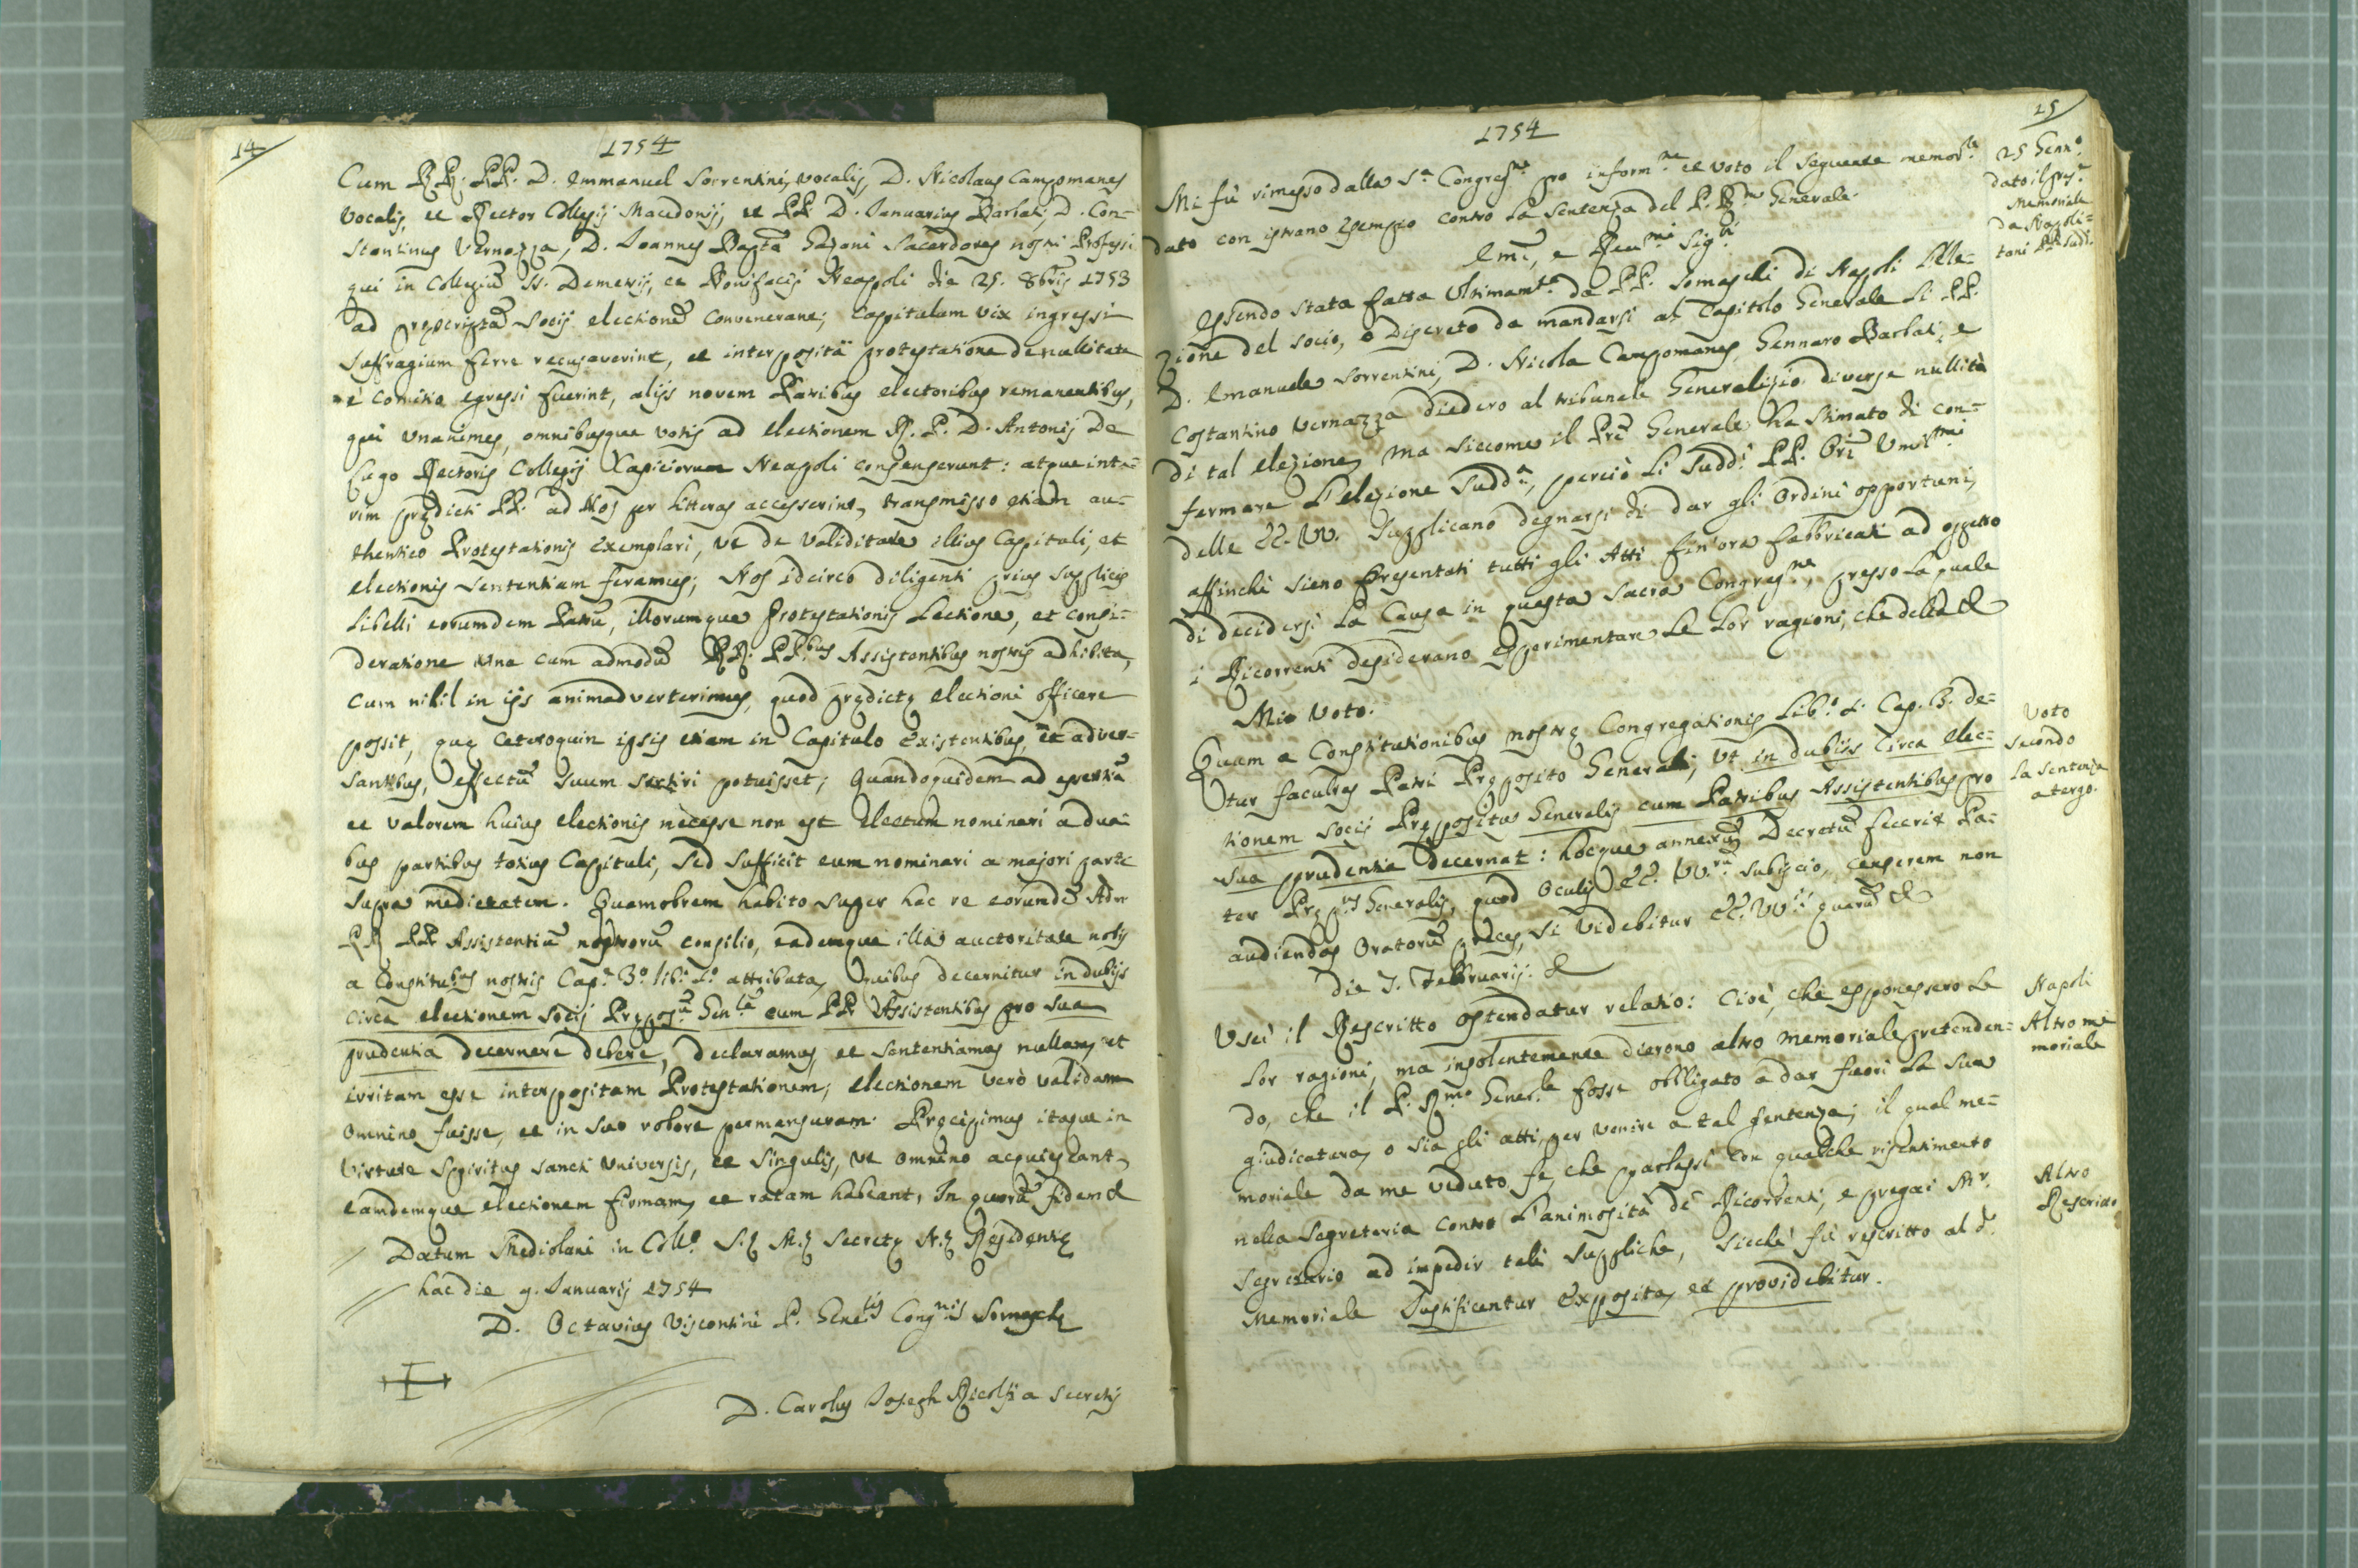 14
1754
Cum RR. PP. D. Emmanuel Sorrentini, vocalis, D. Nicolaus Campomanes
Vocalis, et Rector Collegij Macedonij, et PP. D. Januarius Barbati, D. Con-
stantinus Vernazza, D. Joannes Bapta Gazoni Sacerdotes nostri Professi
qui in Collegiũ SS. Demetrij, et Bonifacij Neapoli die 25. 8bris 1753
ad pręscriptã Socij electionẽ convenerant; Capitulum vix ingressi
Suffragium ferre recusaverint, et interposita protestatione de nullitate
è Comitio egressi fuerint, alijs novem Patribus electoribus remanentibus,
qui unanimes, omnibusque votis ad electionem R. P. D. Antonij De
Lugo Rectoris Collegij Capiciorum Neapoli consenserunt: atque inte-
rim prędicti PP. ad Nos per litteras accesserint, transmisso etiam au-
thentico Protestationis exemplari, ut de validitate illius Capituli, et
electionis Sententiam feramus; Nos idcirco diligenti prius supplicis
Libelli eorumdem Patrũ, illorumque Protestationis Lectione, et consi-
deratione una cum admodũ RR. PP.bus Assistentibus nostris adhibita,
Cum nihil in ijs animadverterimus, quod prędictę electioni officere
possit, quę cæteroquin ipsis etiam in Capitulo existentibus, et adver-
santibus, effectũ suum sortiri potuisset; Quandoquidem ad essentiã
et valorem huius electionis necesse non est electum nominari a dua-
bus partibus totius Capituli, sed sufficit eum nominari a majori parte
supra medietatem. Quamobrem habito super hac re eorundẽ Adm
RR PP Assistentiũ nostrorũ consilio, eademque illa auctoritate nobis
a Constitubus nostris Cap. 3.º lib. 2.º attributa, Quibus decernitur in dubijs
circa electionem socij Pręposũ Gen.lẽ cum PP Assistentibus pro sua
prudentia decernere debere, declaramus, et sententiamus nullam, et
irritam esse interpositam Protestationem; electionem verò validam
omnino fuisse, et in suo robore permansuram. Pręcipimus itaque in
virtute Spiritus Sancti universis, et singulis, ut omnino acquiescant,
eamdemque electionem firmam, et ratam habeant, In quorũ fidem &
Datum Mediolani in Coll.º S.ę M.ę Secretę N.ę Residentię
hac die 9. Januarij 1754
D. Octavius Viscontini P. Gene.lis Cong.nis Somaschę
D. Carolus Joseph Ricolfi a Secretis
15
1754
25 Genn.º
dato il pres.e
Memoriale
da Napoli-
tani PP. Sudd.
Mi fù rimesso dalla S.a Congreg.ne pro inform.ne et voto il seguente memor.le
dato con istrano esempio contro la sentenza del P. R.mo Generale.
Emĩ, e Reu.mi Sig.ri
Essendo stata fatta ultimam.te da PP. Somaschi di Napoli l'Ele-
zione del socio, o Discreto da mandarsi al Capitolo Generale li PP.
D. Emanuele Sorrentini, D. Nicola Campomanes, Gennaro Barbati, e
Costantino Vernazza diedero al tribunale Generalizio diverse nullità
di tal elezione, ma siccome il Prẽ Generale ha stimato di con-
fermare l'elezione sudd.a, perciò li sudd.i PP. Orĩ Umil.mi
delle EE. VV. supplicano degnarsi di dar gli ordini opportuni,
affinchè sieno presentati tutti gli Atti fin'ora fabbricati ad oggetto
di decidersi la Causa in questa Sacra Congreg.ne, presso la quale
i Ricorrenti desiderano esperimentare le lor ragioni, che della &
Mio Voto.
Voto
secondo
la sentenza
a tergo.
Quum a Constitutionibus nostrę Congregationis Lib.º 2. Cap. 3. de-
tur facultas Patri Pręposito Generali, ut in dubijs circa elec-
tionem socij Prępositus Generalis cum Patribus Assistentibus pro
sua prudentia decernat: hocque annexũ Decretũ fecerit Pa-
ter Pręp.tus Generalis, quod oculis EE. VV.rũ subijcio, censerem non
audiendas Oratorũ preces, si videbitur EE. VV.s quarũ &
Die 7. Februarij. &
Napoli
Altro me
moriale
Uscì il Rescritto ostendatur relatio: Cioè, che esponessero le
lor ragioni, ma insolentemente dierono altro memoriale pretenden-
do, che il P. R.mo Gener.le fosse obbligato a dar fuori la sua
giudicatura, o sia gli atti, per venire a tal sentenza; il qual me-
moriale da me veduto fe, che parlassi con qualche risentimento
nella Segreteria contro l'animosità de' Ricorrenti, e pregai Mr.
Segretario ad impedir tali suppliche, sicchè fù rescritto al d.º
Memoriale Justificentur exposita, et providebitur.
Altro
Rescritto